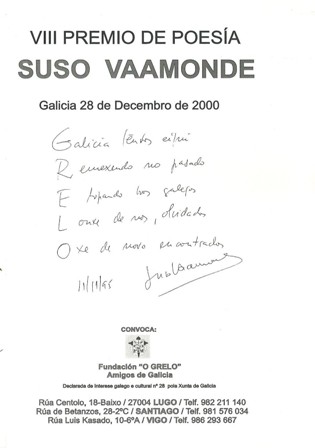 VIII PREMIO DE POESÍA
SUSO VAAMONDE
Galicia 28 de Decembro de 2000
Galicia
Remexendo no pasado
E topando
Lonxe de nos, olvidados
Oxe de novo encontrados
11/11/96
CONVOCA:
Fundación "O GRELO"
Amigos de Galicia
Declarada de Interese galego e cultural nº 28 pola Xunta de Galicia
Rúa Centolo, 18-Baixo / 27004 LUGO / Telf. 982 211 140
Rúa de Betanzos, 28-2ºC / SANTIAGO / Telf. 981 576 034
Rúa Luis Kasado, 10-6ºA / VIGO / Telf. 986 293 667